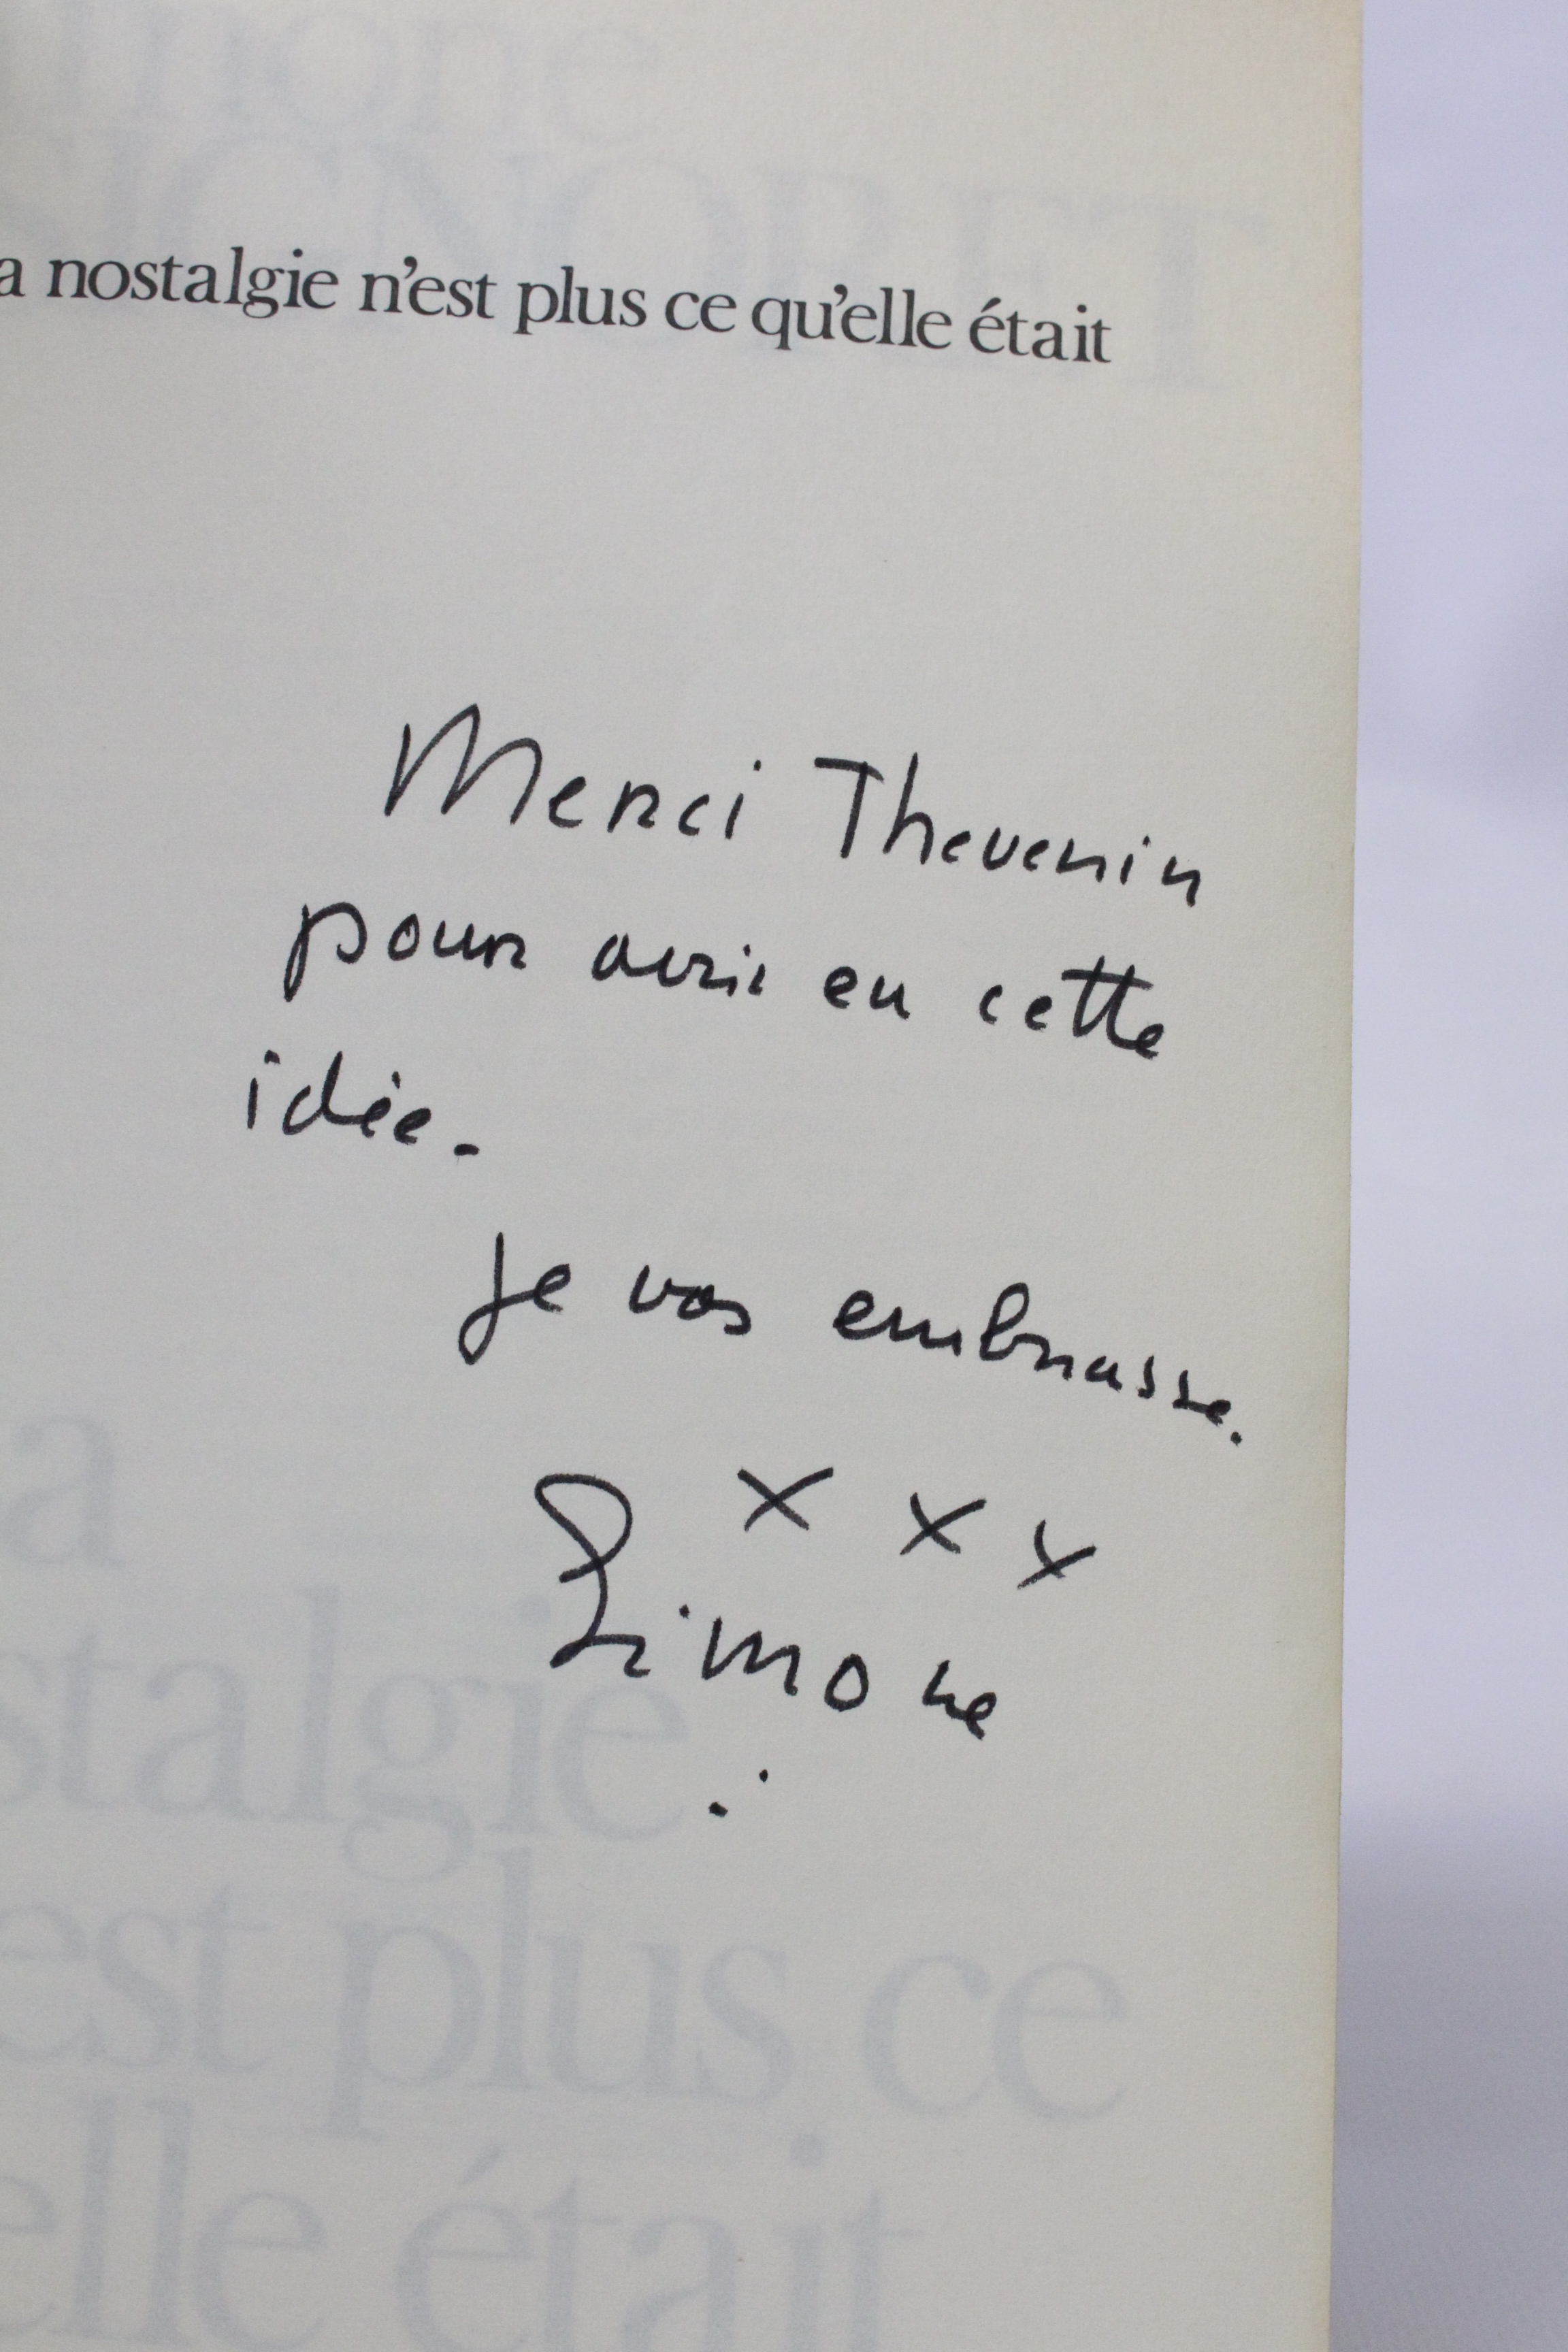 a nostalgie n'est plus ce qu'elle était
Merci Thevenin
pour avoir eu cette
idée.
Je vous embrasse.
x x x
Simone
imone
SIGNORET
a
stalgie
est plus ce
elle était